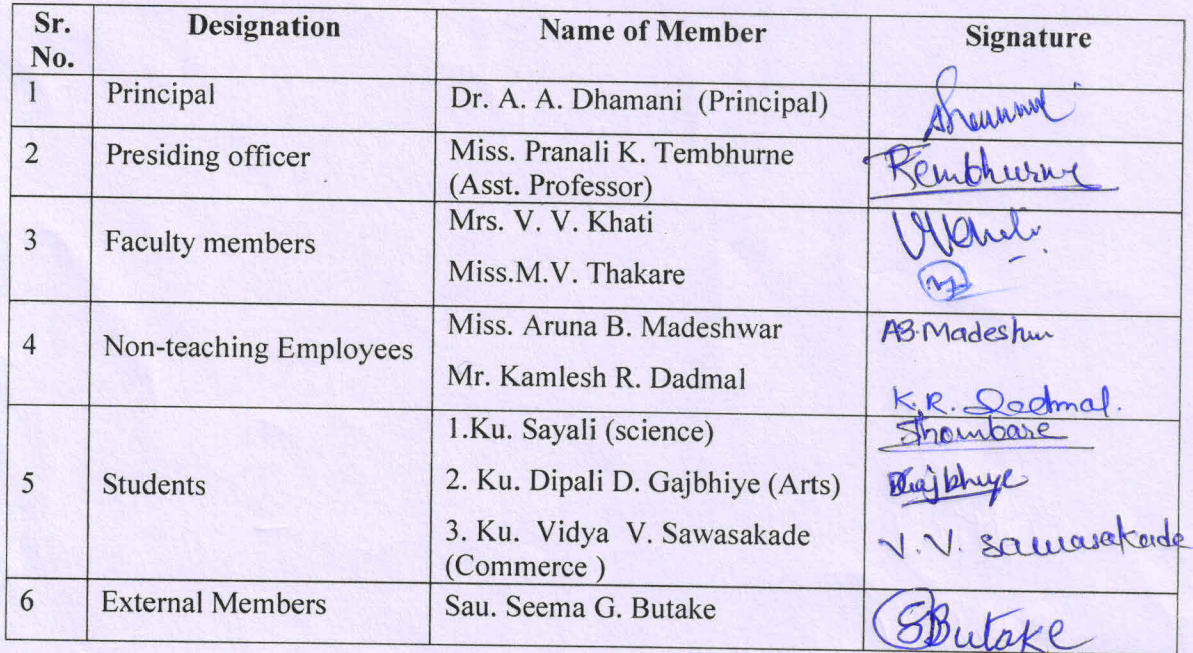 Sr. No. Designation Name of Member Signature
1 Principal Dr. A. A. Dhamani (Principal)
2 Presiding officer Miss. Pranali K. Tembhurne (Asst. Professor) Tembhurne
3 Faculty members Mrs. V. V. Khati
Miss.M.V. Thakare
4 Non-teaching Employees Miss. Aruna B. Madeshwar
Mr. Kamlesh R. Dadmal K.R. Dadmal.
5 Students 1.Ku. Sayali (science) Shombare
2. Ku. Dipali D. Gajbhiye (Arts) Gajbhiye
3. Ku. Vidya V. Sawasakade (Commerce ) V. V. Sawasakade
6 External Members Sau. Seema G. Butake SButake